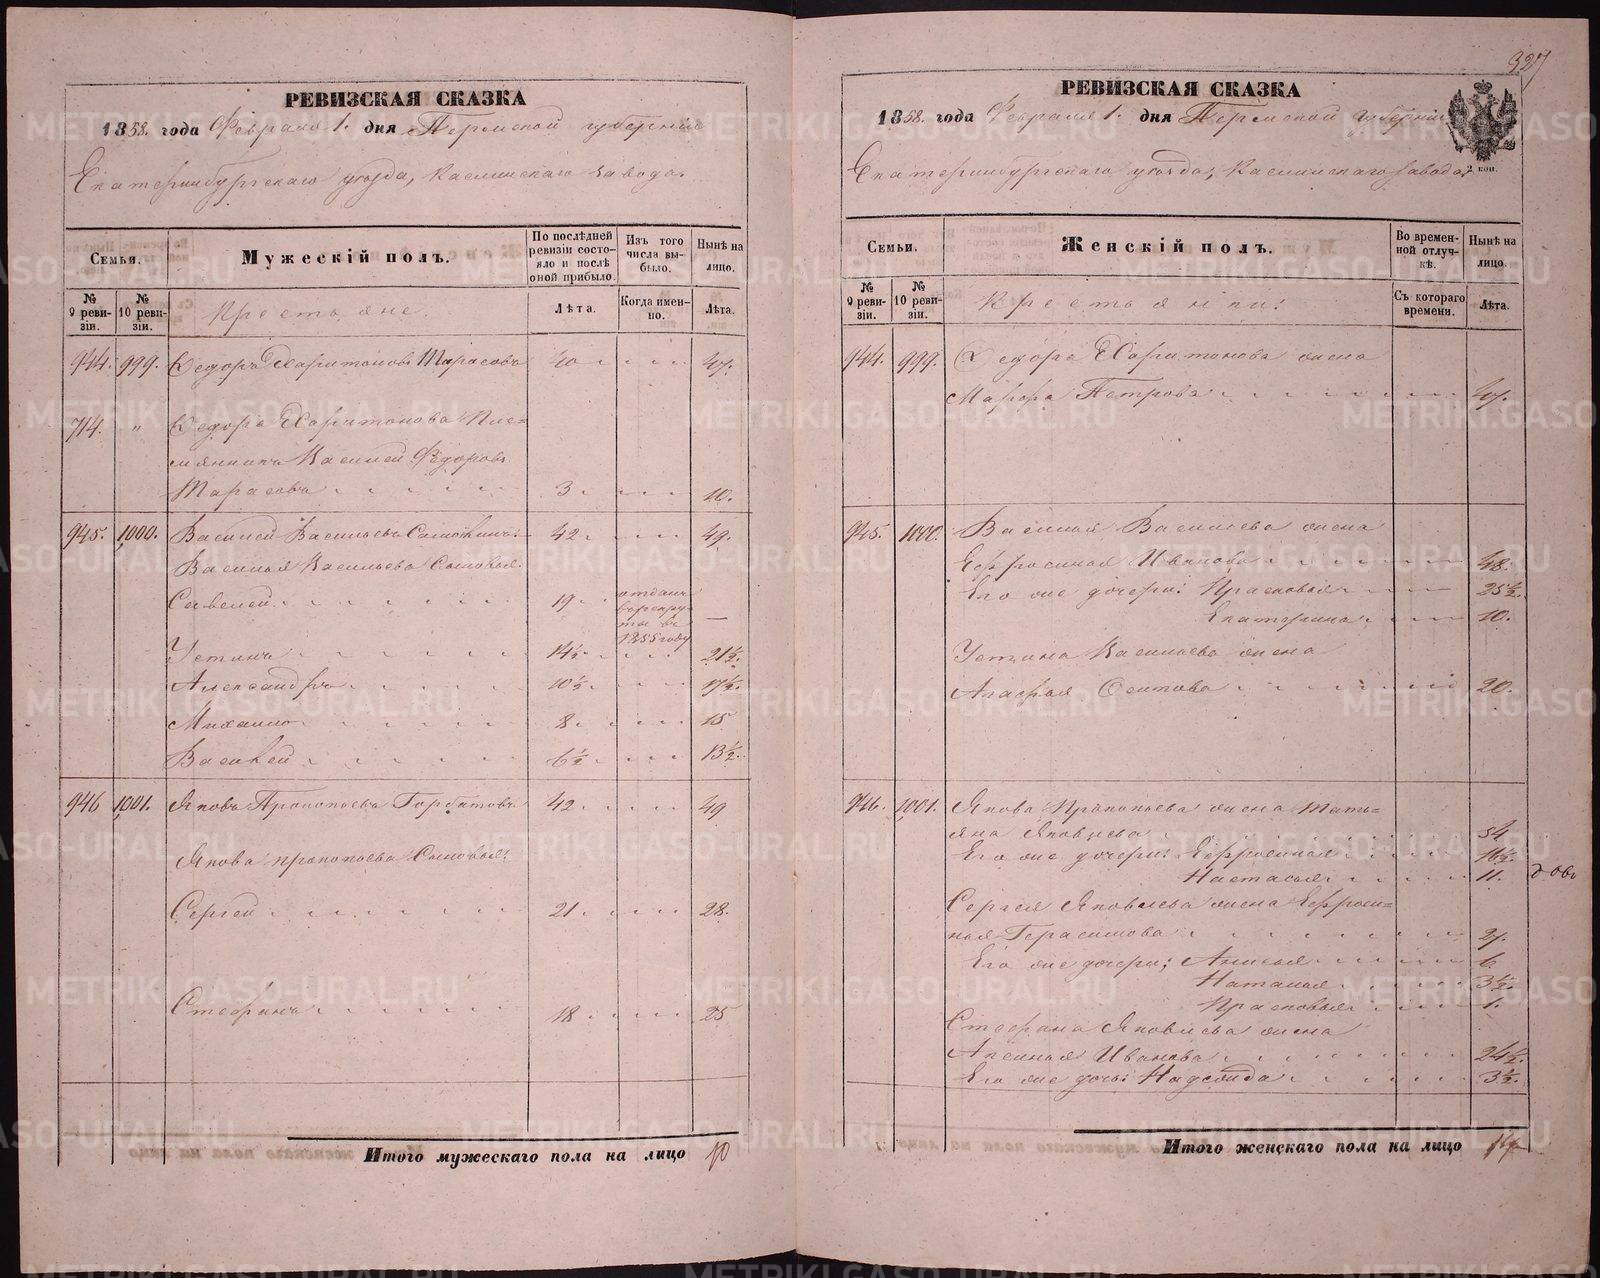 РЕВИЗСКАЯ СКАЗКА
1858. года Февраля 1. дня Пермской губерніи
Екатеринбургскаго уѣзда, Каслинскаго завода.
Семьи.
Мужескій полъ.
По послѣдней ревизіи состояло и послѣ оной прибыло.
Изъ того числа выбыло.
Нынѣ на лицо.
№ 9 ревизіи.
№ 10 ревизіи.
Крестьяне
Лѣта.
Когда именно.
Лѣта.
944. 999. Ѳедоръ Харитоновъ Тарасовъ 40 47.
714. " Ѳедора Харитонова Пле-
мянникъ Василей Ѳедоровъ
Тарасовъ 3 10.
945. 1000. Василей Васильевъ 42 49.
Василья Васильева Сыновья
Савелей 19 отданъ в рекруты въ 1855 году —
Устинъ 14½ 21½.
Александръ 10½ 17½.
Михаило 8 15
Василей 6½ 13½.
946 1001. Яковъ Прокопьевъ Горбатовъ 42 49
Якова Прокопьева Сыновья:
Сергей 21 28.
Стефанъ 18 25
Итого мужескаго пола на лицо 10
327
РЕВИЗСКАЯ СКАЗКА
1858 года Февраля 1. дня Пермской губерніи
2 коп.
Екатеринбургскаго уѣзда, Каслинскаго завода.
Семьи.
Женскій полъ.
Во временной отлучкѣ.
Нынѣ на лицо.
№ 9 ревизіи.
№ 10 ревизіи.
Крестьянки:
Съ котораго времени.
Лѣта.
944. 999. Ѳедора Харитонова жена
Марфа Петрова 47.
945. 1000. Василья Васильева жена
Ефросинья Иванова 48.
Его же дочери: Прасковья 25½.
Екатерина 10.
Устина Васильева жена
Агафья Осипова 20.
946. 1001. Якова Прокопьева жена Тать-
яна Яковлева 54
Его же дочери: Ефросинья 16½.
Настасья 11.
Сергея Яковлева жена Ефроси-
нья Герасимова 27.
Его же дочери; Анисья 6
Наталья 3½.
Прасковья 1.
Стефана Яковлева жена
Аксинья Иванова 24½.
Его же дочь: Надежда 3½.
Итого женскаго пола на лицо 14
METRIKI.GASO-URAL.RU